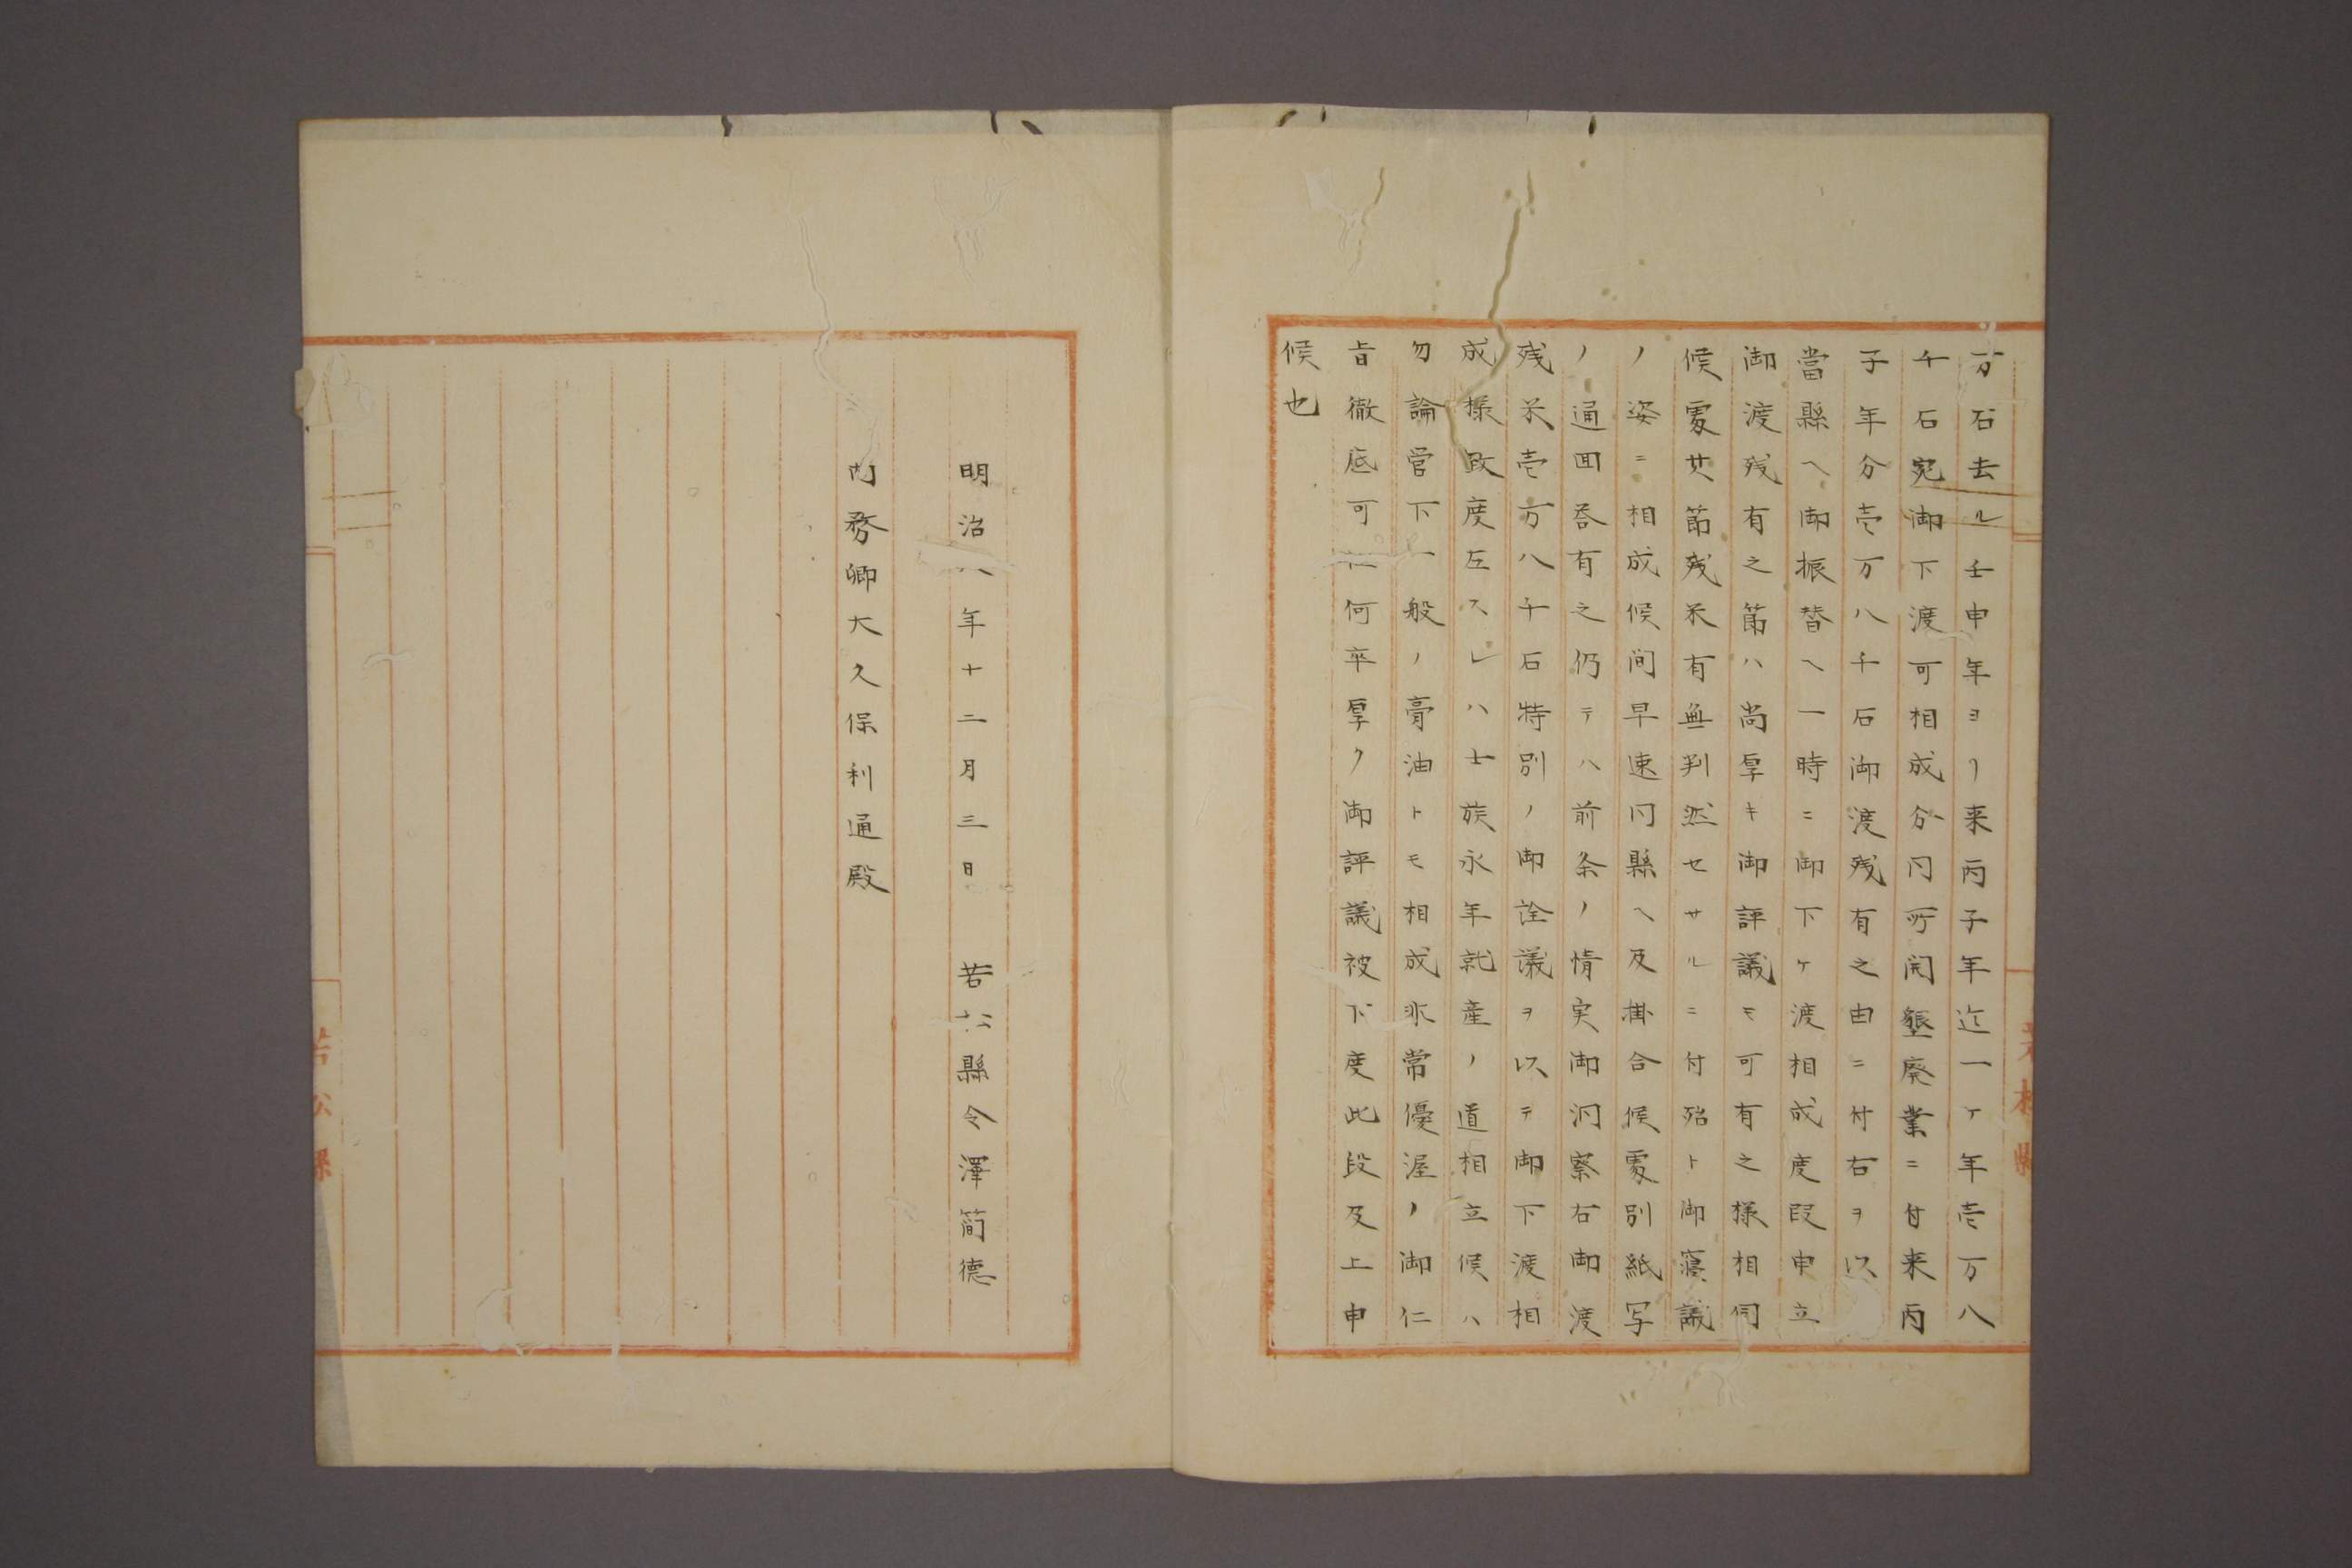 万石去ル壬申年ヨリ来丙子年迄一ケ年壱万八
千石宛御下渡可相成分同所開墾廃業ニ付来丙
子年分壱万八千石御渡残有之由ニ付右ヲ以
當縣ヘ御振替ヘ一時ニ御下ケ渡相成度段申立
御渡残有之節ハ尚厚キ御評議モ可有之様相伺
候處其節残米有無判然セサルニ付殆ト御寝議
ノ姿ニ相成候间早速同縣ヘ及掛合候處別紙写
ノ通囬荅有之仍テハ前条ノ情実御洞察右御渡
残米壱万八千石特別ノ御詮議ヲ以テ御下渡相
成様致度左スレハ士族永年就産ノ道相立候ハ
勿論営下一般ノ膏油トモ相成非常優渥ノ御仁
旨徹底可仕何卒厚ク御評議被下度此段及上申
候也
明治八年十二月三日 若松縣令澤簡徳
内務卿大久保利通殿
若松縣
若松縣